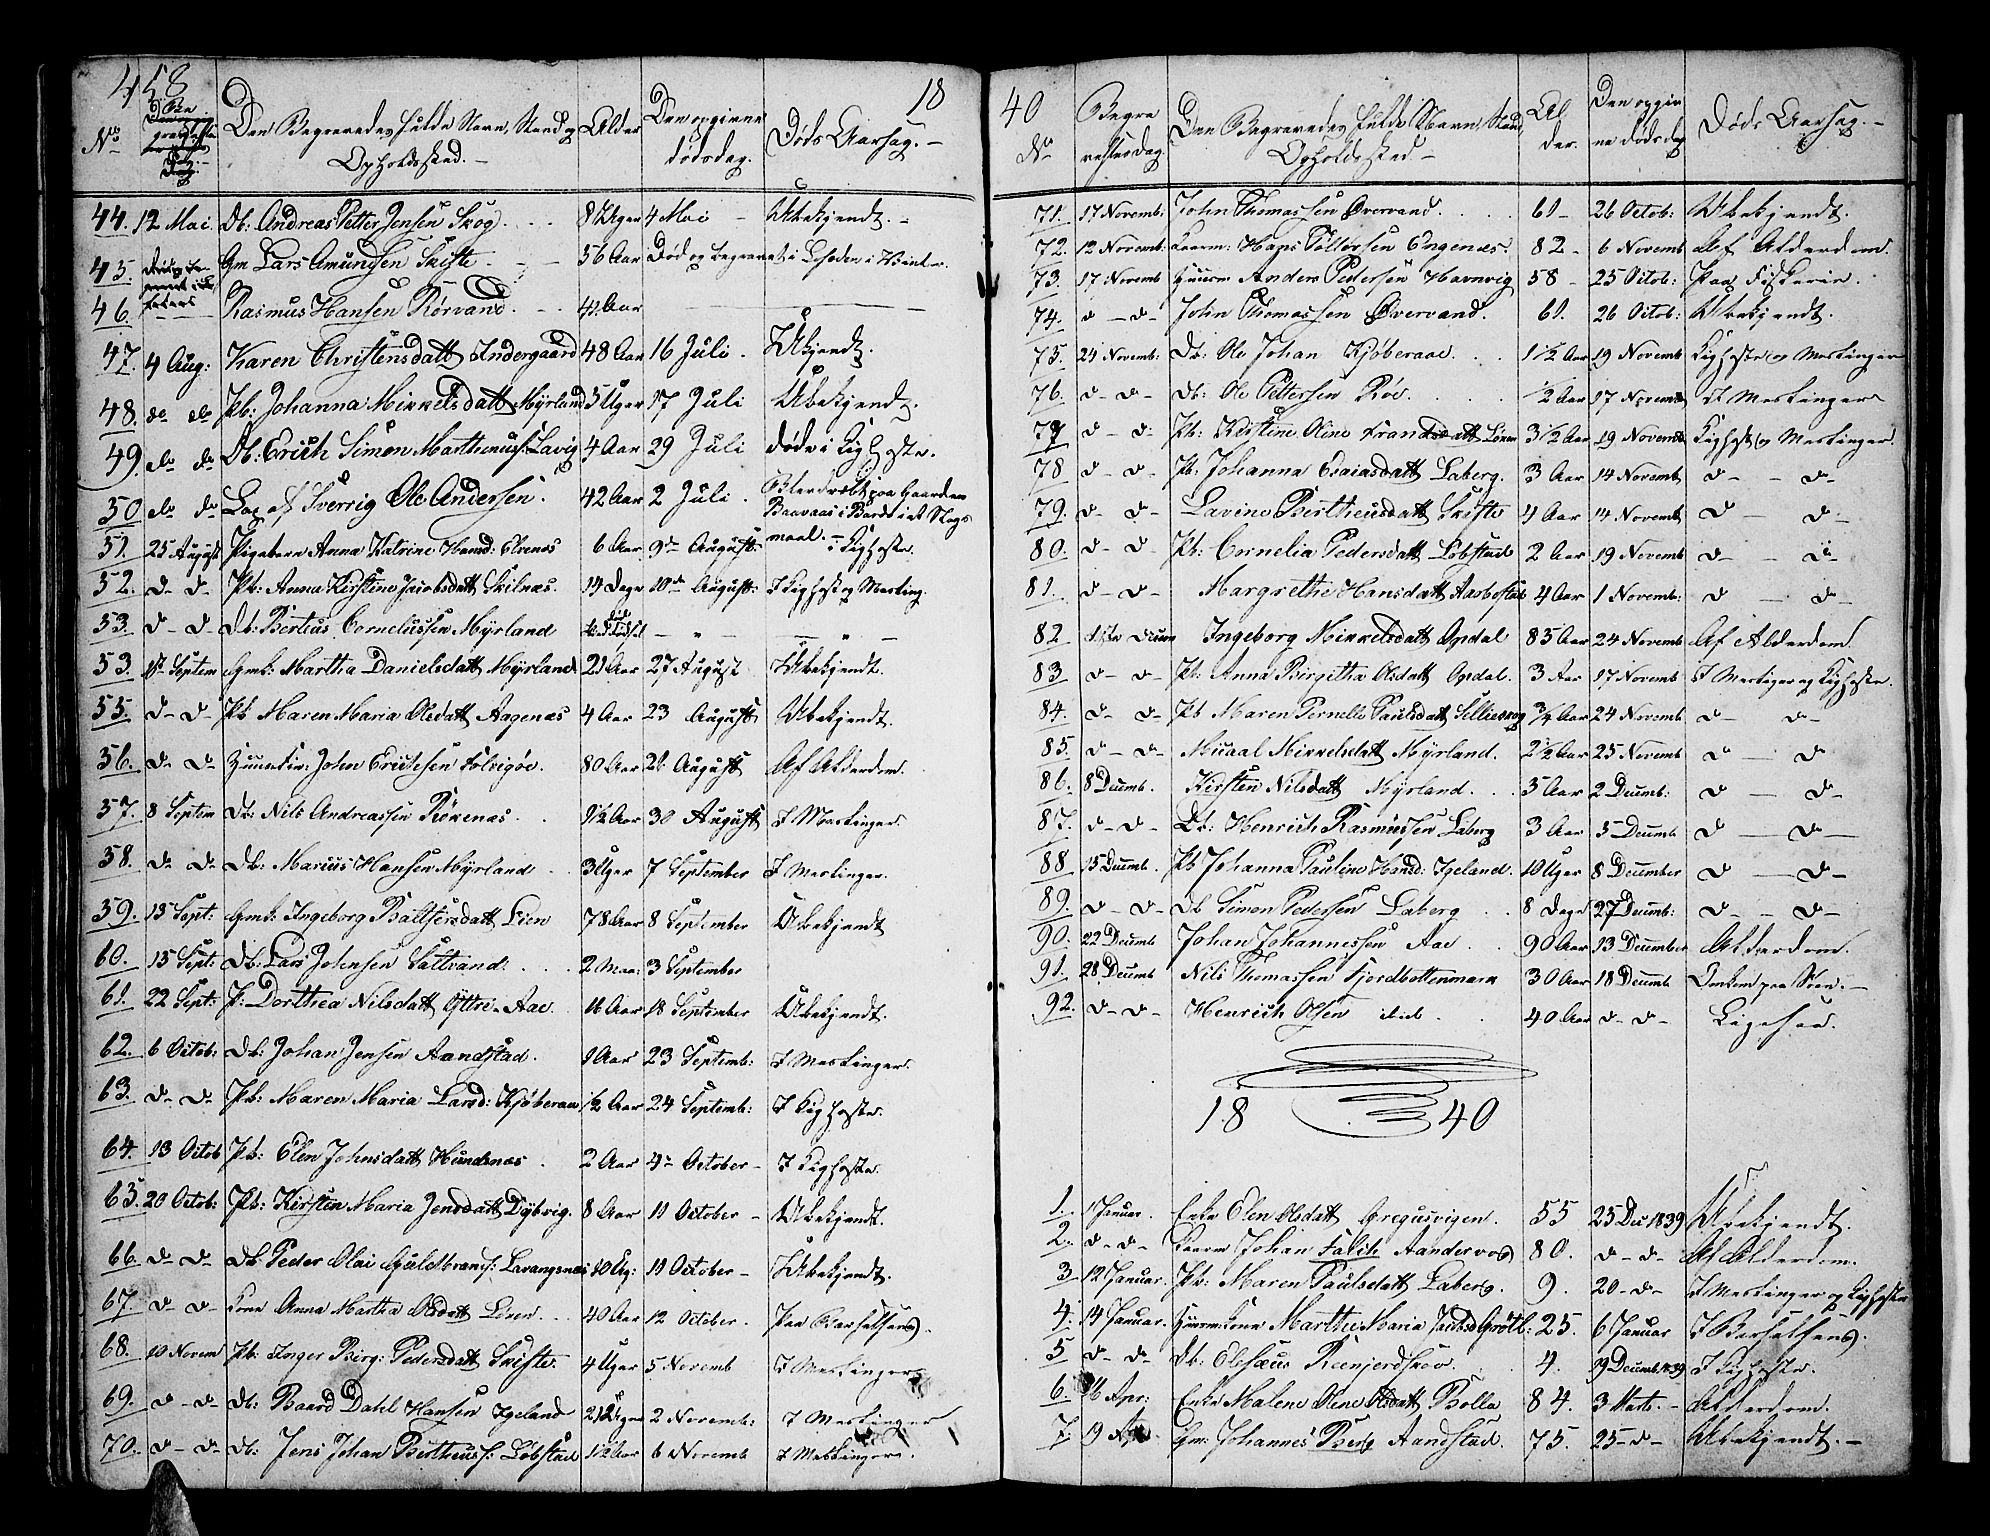 458
18
No
Den Begravedes fulde Navn, Stand og
Opholdssted.
Alder
Den opgivne
dødsdag.
Døds Aarsag.
44. 12 Mai. Db. Andreas Petter Jensen Skog. 8 Uger 4 Mai Ubekjendt.
45. Gm Lars Amundsen Skifte 56 Aar Død og begravet i
46. Rasmus Hansen Rørvand. 41 Aar
47. 4 Aug: Karen Christensdatt Indergaard 48 Aar 16 Juli. Ukjendt.
48. do do Pb: Johanna Mikkelsdatt Myrland 5 Uger 17 Juli Ubekjendt.
49. do do Db: Erich Simon Marthinuss: Lavig 4 Aar 29 Juli døde i Kighoste.
50 do do Lap af Sverrig Ole Andersen. 42 Aar 2 Juli.
51. 25 August Pigebarn Anna Katrine Hansd: Elvenes 6 Aar 9de August i Kighoste.
52. d- d- Pb: Anna Kirstine Jacobsdatt Skilnæs 14 Dage 10de August: I Kighoste og Mesling.
53. d- d- Db: Berteus Corneliussen Myrland
53. 1st Septem Gmk: Martha Danielsdatt Myrland 21 Aar 27 August Ubekjendt.
55. d- d- Pb Maren Maria Olsdatt Aagenæs 4 Aar 23 August Ubekjendt.
56. d- d- John Erichsen 80 Aar 26 August Af Alderdom.
57. 8 Septem Db: Nils Andreassen Røkenæs 1½ Aar 30 August I Meslinger.
58. d- d- Db: Marius Hansen Myrland 3 Uger 7 September I Meslinger.
59. 13 Sept: Gmk: Ingeborg Baltsersdatt Lien 78 Aar 8 September Ubekjendt
60. 13 Sept: Db: Lars Johnsen Saltvand. 2 Maa: 3 September
61. 22 Sept: P: Dorthea Nilsdatt Yttre-Aae. 16 Aar 18 September Ubekjendt.
62. 6 Octob: Db: Johan Jensen Aandstad. 1 Aar 23 Septemb: I Meslinger.
63. d- d- Pb: Maren Maria Larsd: Kjøberaae ½ Aar 24 Septemb: I Kighoste.
64. 13 Octob Pb: Elen Johnsdatt Hundenæs. 2 Aar 4de October I Kighoste.
65. 20 Octob: Pb: Kirsten Maria Jensdatt Dybvig. 8 Aar 11 October Ubekjendt.
66. d- d- Db Peder Olai Guldbrands: Lavangsnæs 10 Ug: 11 October Ubekjendt.
67. d- d- Kone Anna Martha Olsdatt Løven 40 Aar 12 October. Paa Barselseng.
68. 10 Novem Pb: Inger Birg: Pedersdatt Skifte 4 Uger 5 Novemb I Meslinger
69. d- d- Db: Baard Dahl Hansen Igeland 2 Novemb: I Meslinger
70. d- d- Db: Jens Johan Bertheus: Løbstad 1½ Aar 6 Novemb I Meslinger.
40
No
Begra
velsesdag.
Den Begravedes fulde Navn, Stand,
Opholdssted
Al
der.
Den opgiv
ne dødsdag
Døds Aarsag.
71. 17 Novemb: John Thomassen Øvervand. 61 26 Octob: Ubekjendt.
72. 12 Novemb: Kaarm: Hans Peltersen Engenæs. 82 6 Novemb Af Alderdom.
73. 17 Novemb Huusm Anders Pedersen Havnvig 58 25 Octob: Paa Fiskerie.
74. d- d- John Thomassen Øvervand. 61. 26 Octob: Ubekjendt.
75. 24 Novemb: Db: Ole Johan Kjøberaae. 1½ Aar 19 Novemb Kighoste og Meslinger
76. d- d- Db: Ole Pettersen Røe. ½ Aar 17 Novemb I Meslinger
77 d- d- Pb: Kirstine Oline Frandsdatt Løven 3½ Aar 19 Novemb Kighoste og Meslinger.
78 d- d- Pb. Johanna Esaiasdatt Laberg. 3 Aar 14 Novemb d- d-
79. d- d- Lavine Bertheusdatt Skifte 4 Aar 14 Novemb d- d-
80. d- d- Pb: Cornelia Pedersdatt Løbstad 2 Aar 19 Novemb d- d-
81. d- d- Margrethe Hansdatt Aarbostad 4 Aar 1 Novemb: d- d-
82 1ste Decem Ingeborg Mikkelsdatt Opdal 85 Aar 24 Novemb Af Alderdom.
83 d- d- Pb: Anna Birgitha Olsdatt Opdal. 3 Aar 17 Novemb I Meslinger og Kighoste.
84. d- d- Pb Maren Pernelle Paulsdatt Silleskog ¾ Aar 24 Novemb d- d-
85. d- d- Micaal Mikkelsdatt Myrland. 2½ Aar 25 Novemb d- d-
86. 8 Decemb. Kirsten Nilsdatt Myrland. 3 Aar 2 Decemb: d- d-
87. d- d- Db: Henrich Rasmussen Laberg 3 Aar 5 Decemb d- d-
88 15 Decemb. Pb Johanna Pauline Hansd: Igeland. 10 Uger 8 December d- d-
89. d- d- Db Simon Pedersen Laberg 8 Dage 27 Decemb: d- d-
90. 22 Decemb Johan Johannessen Aae 90 Aar 13 December Alderdom.
91. 28 Decemb Nils Thomassen Fjordbottenmark 30 Aar 18 Decemb Omkom paa Søen.
92. d- d- Henrich Olsen ibid. 40 Aar d- d- Ligesaa.
18 40
1. 1 Januar. Enke Elen Olsdatt Gregusvigen. 55 25 Dec 1839 Ubekjendt.
2. d- d- Kaarm Johan Falch Aandervog 80. d- d- Af Alderdom.
3 12 Januar. Pb: Maren Paulsdatt Laberg. 9. 20 d- I Meslinger og Kighoste
4. 14 Januar. Huusm Kone Marthe Maria Jacobsd Grøtl: 25. 6 Januar I Barselseng.
5 d- d- Db: Elesæus Reenjerdskov 4. 19 Decemb 1839 I Kighoste.
6. 16 Apr: Enke Malene Oline Olsdatt Bolla 84. 3 Marts. Alderdom.
7. 19 Gm: Johannes Berg Aandstad. 75. 25 d- Ubekjendt.